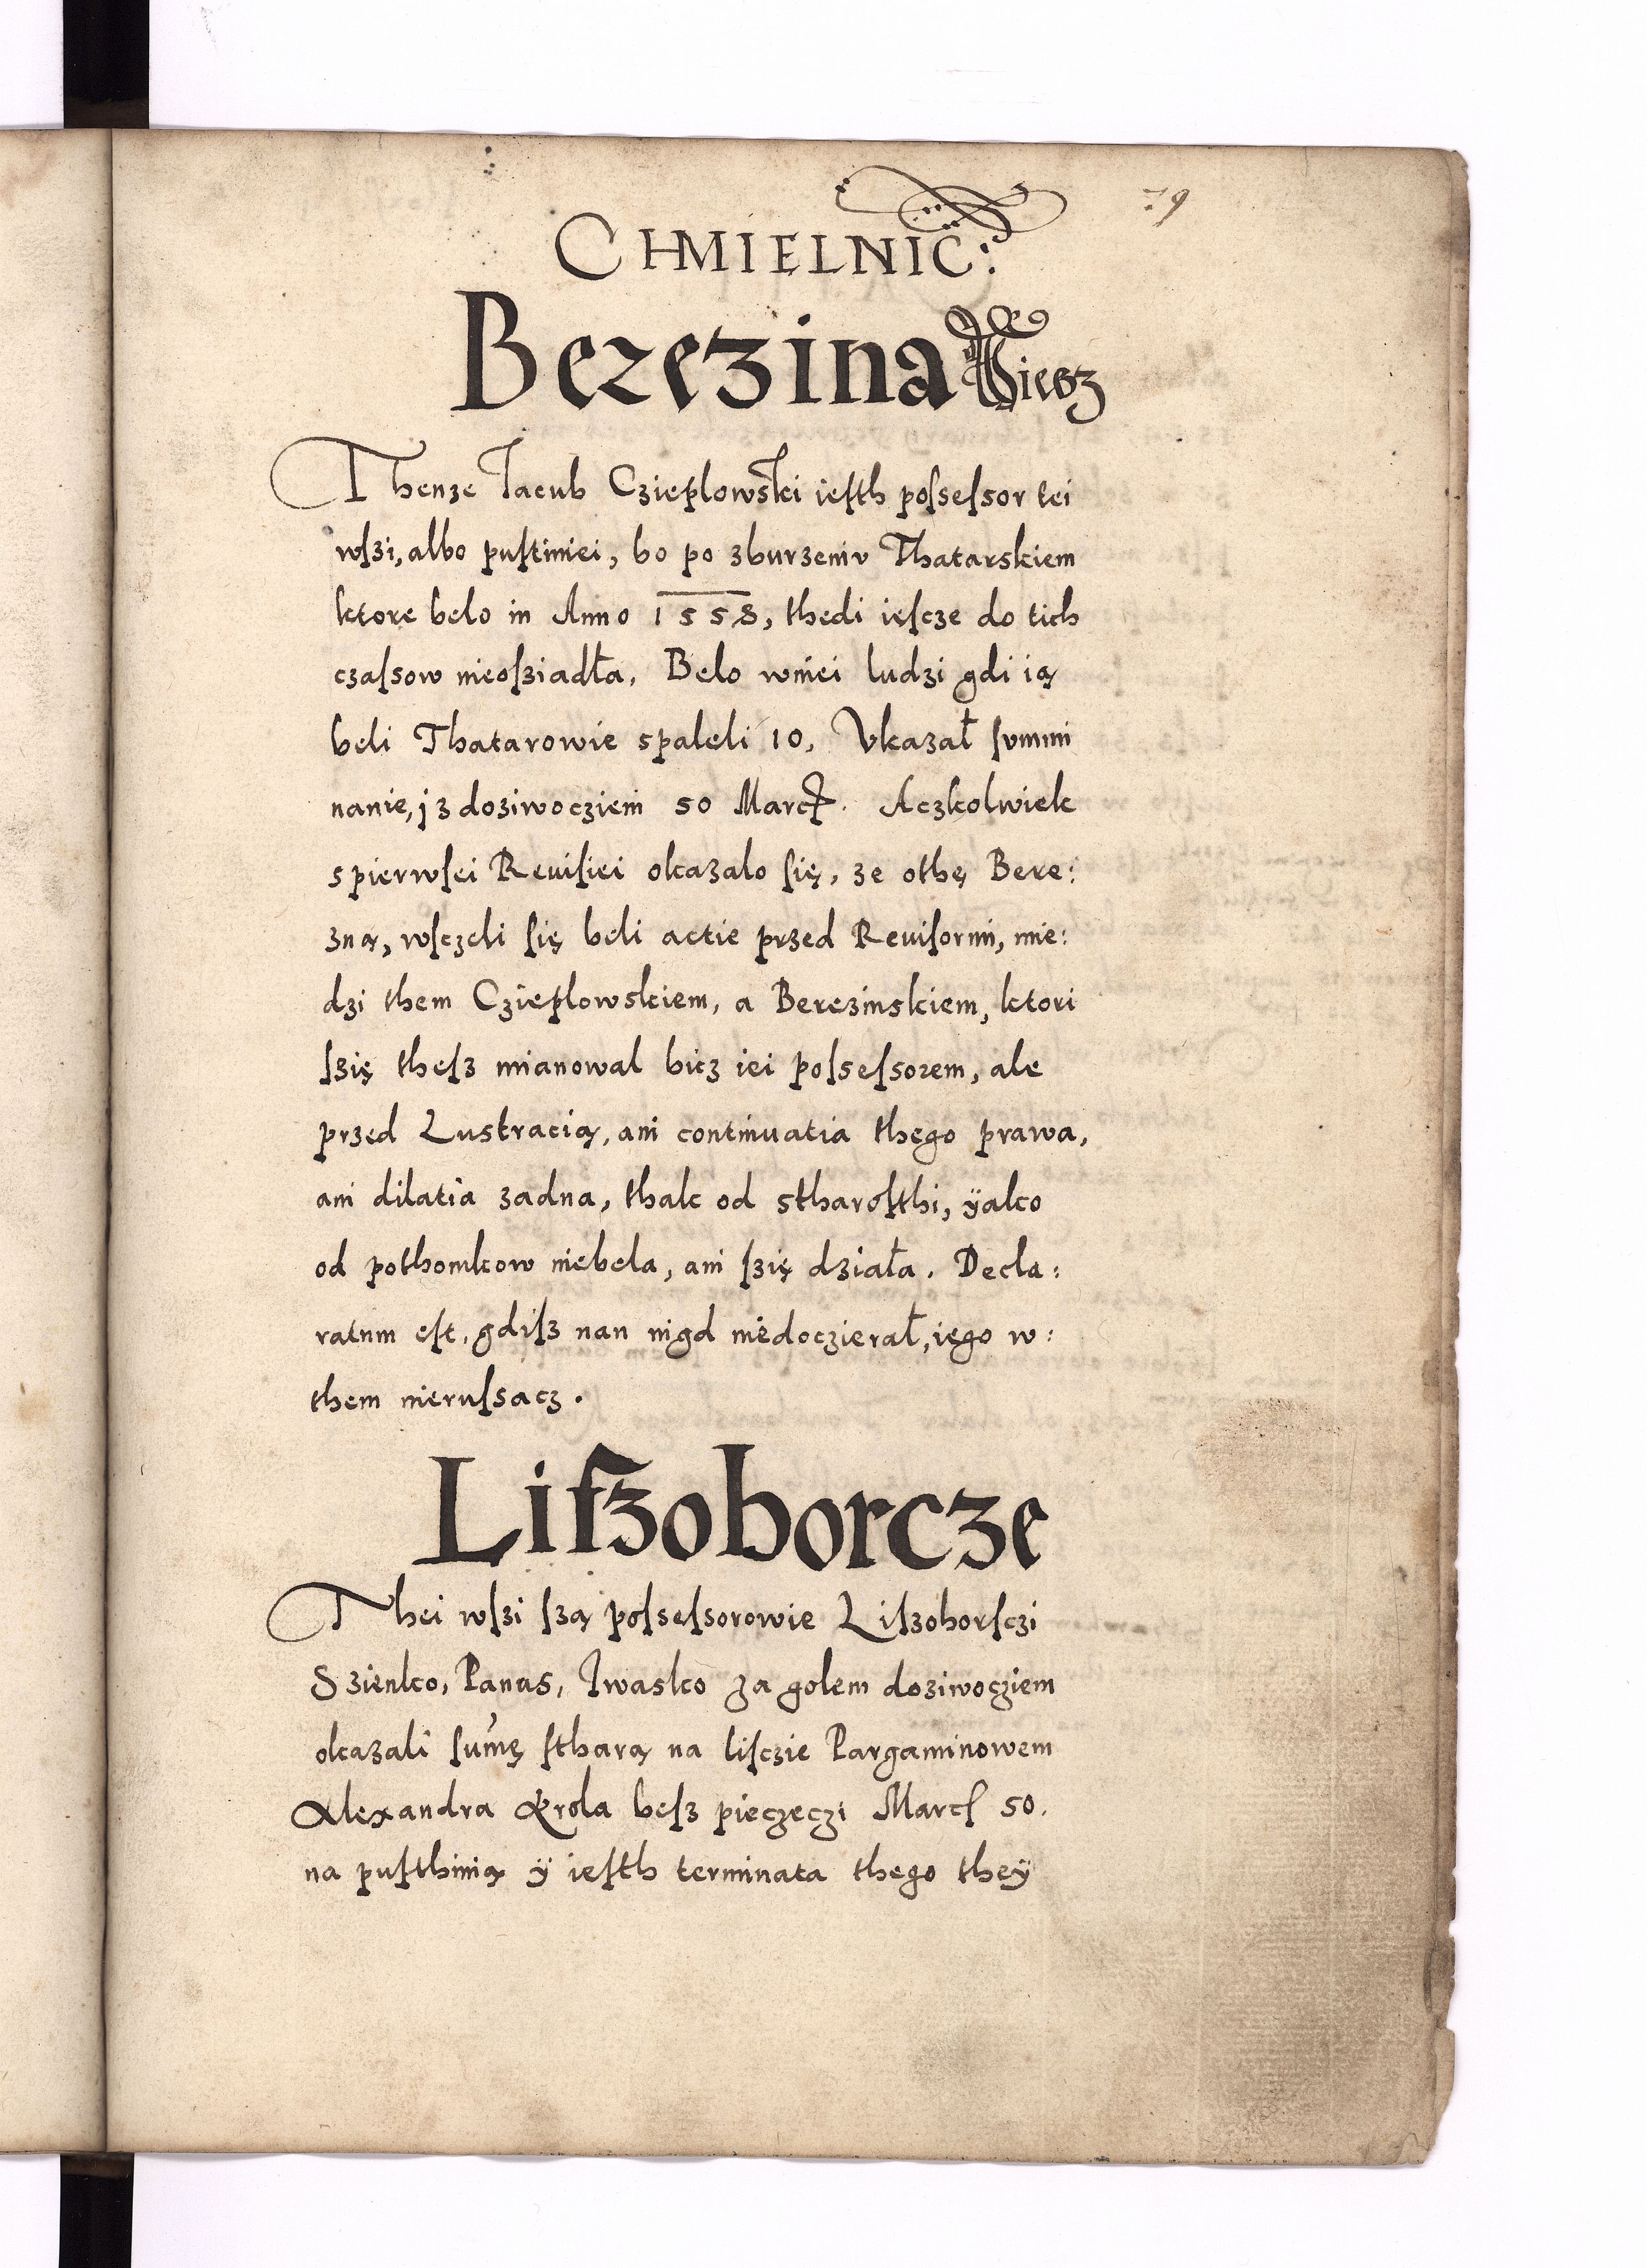 79
CHMIELNIC:
Berezina Wiesz
Thenze Jacub Czieplowski iesth possessor tei
wszi, albo pustiniei, bo po zburzeniu Thatarskiem
ktore belo in Anno 1558, thedi iescze do tich
czassow nieosziadła, Belo wniei ludzi gdi ią
beli Thatarowie spaleli 10, Vkazał summi
nanie, jz doziwocziem 50 Marc. Aczkolwiek
spierwsei Reuisiei okazalo się, ze othę Bere:
zną, wsczeli się beli actie przed Reuisormi, mie:
dzi them Czieplowskiem, a Berezinskiem, ktori
szię thesz mianowal bicz iei possessorem, ale
przed Lustracią, ani continuatia thego prawa,
ani dilatia zadna, thak od stharosthi, ÿako
od pothomkow niebela, ani szię działa. Decla:
ratum est, gdisz nan nigd niedoczierał, iego w:
them nierussacz.
Liszoborcze
Thei wszi szą possessorowie Liszoborsczi
Szienko, Panas, Iwasko za golem doziwocziem
okazali sumę stharą na lisczie Pargaminowem
Alexandra Krola besz pieczeczi Marc 50.
na pusthinią ÿ iesth terminata thego theÿ